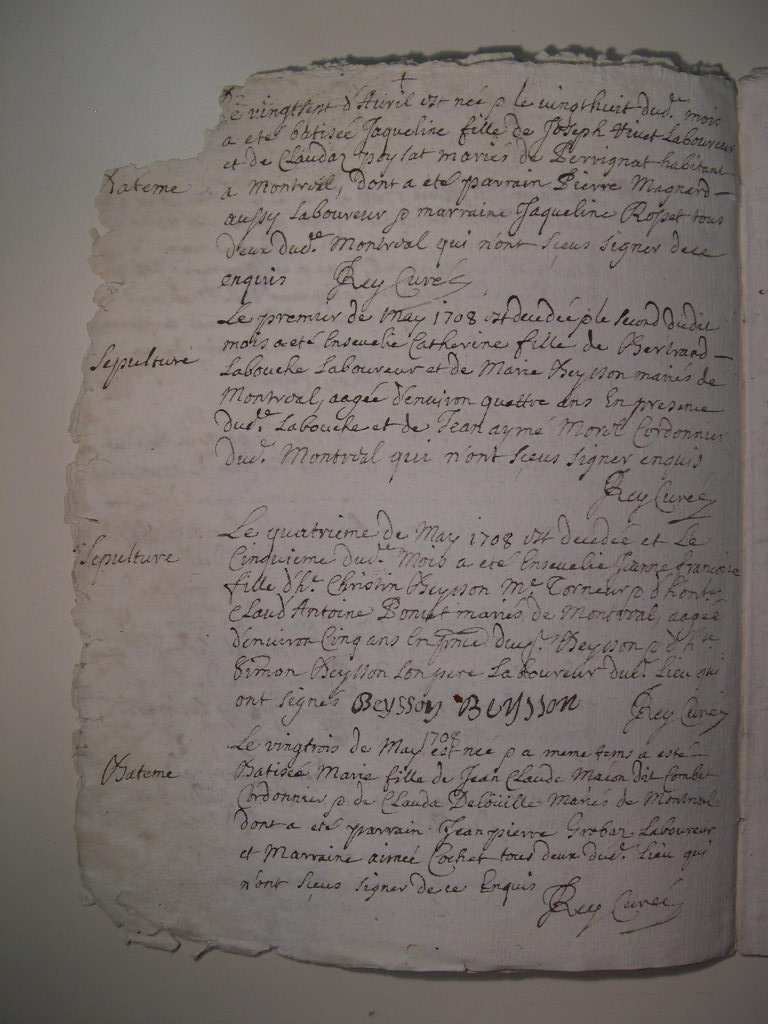 Le vingtsept d'Avril est née p le vingthuit dud.t mois
a eté batisée Jaqueline fille de Joseph Vivet Laboureur
et de Clauda poysat mariés de Perrignat habitant
Bateme
a Montreal, dont a eté parrain Pierre Magnard
aussy Laboureur p marraine Jaqueline Rosset tous
deux dud.t Montreal qui n'ont sceus signer de ce
enquis JRey Curé
Le premier de May 1708 est decedée p le second dudit
mois a eté Ensevelie Catherine fille de Bertrand
Sepulture
Labouche Laboureur et de Marie Beysson mariés de
Montreal, aagée d'environ quattre ans En presence
dud.t Labouche et de Jean aymé Morel Cordonnier
dud.t Montreal qui n'ont sceus signer enquis
JRey Curé
Le quatrieme de May 1708 est decedée et Le
Sepulture
Cinquieme dud.t Mois a eté Ensevelie Jeanne francoise
fille d'h.e Christin Beysson M.e Torneur p d'honte
Claud Antoine Poncet mariés de Montreal, aagée
d'environ Cinq ans En pnce dud.t Beysson p d'h.e
Simon Beysson son pere Laboureur dud.t Lieu qui
ont signés Beysson BEYSSON JRey Curé
Le vingtrois de May 1708 est née p a meme tems a esté
Bateme
Batisée Marie fille de Jean Claude Macon dit Combet
Cordonnier p de Clauda Deloüille Mariés de Montreal
dont a eté parrain Jean pierre Grobaz Laboureur
et Marraine aimeé Cochet tous deux dud.t Lieu qui
n'ont sceus signer de ce Enquis
JRey Curé